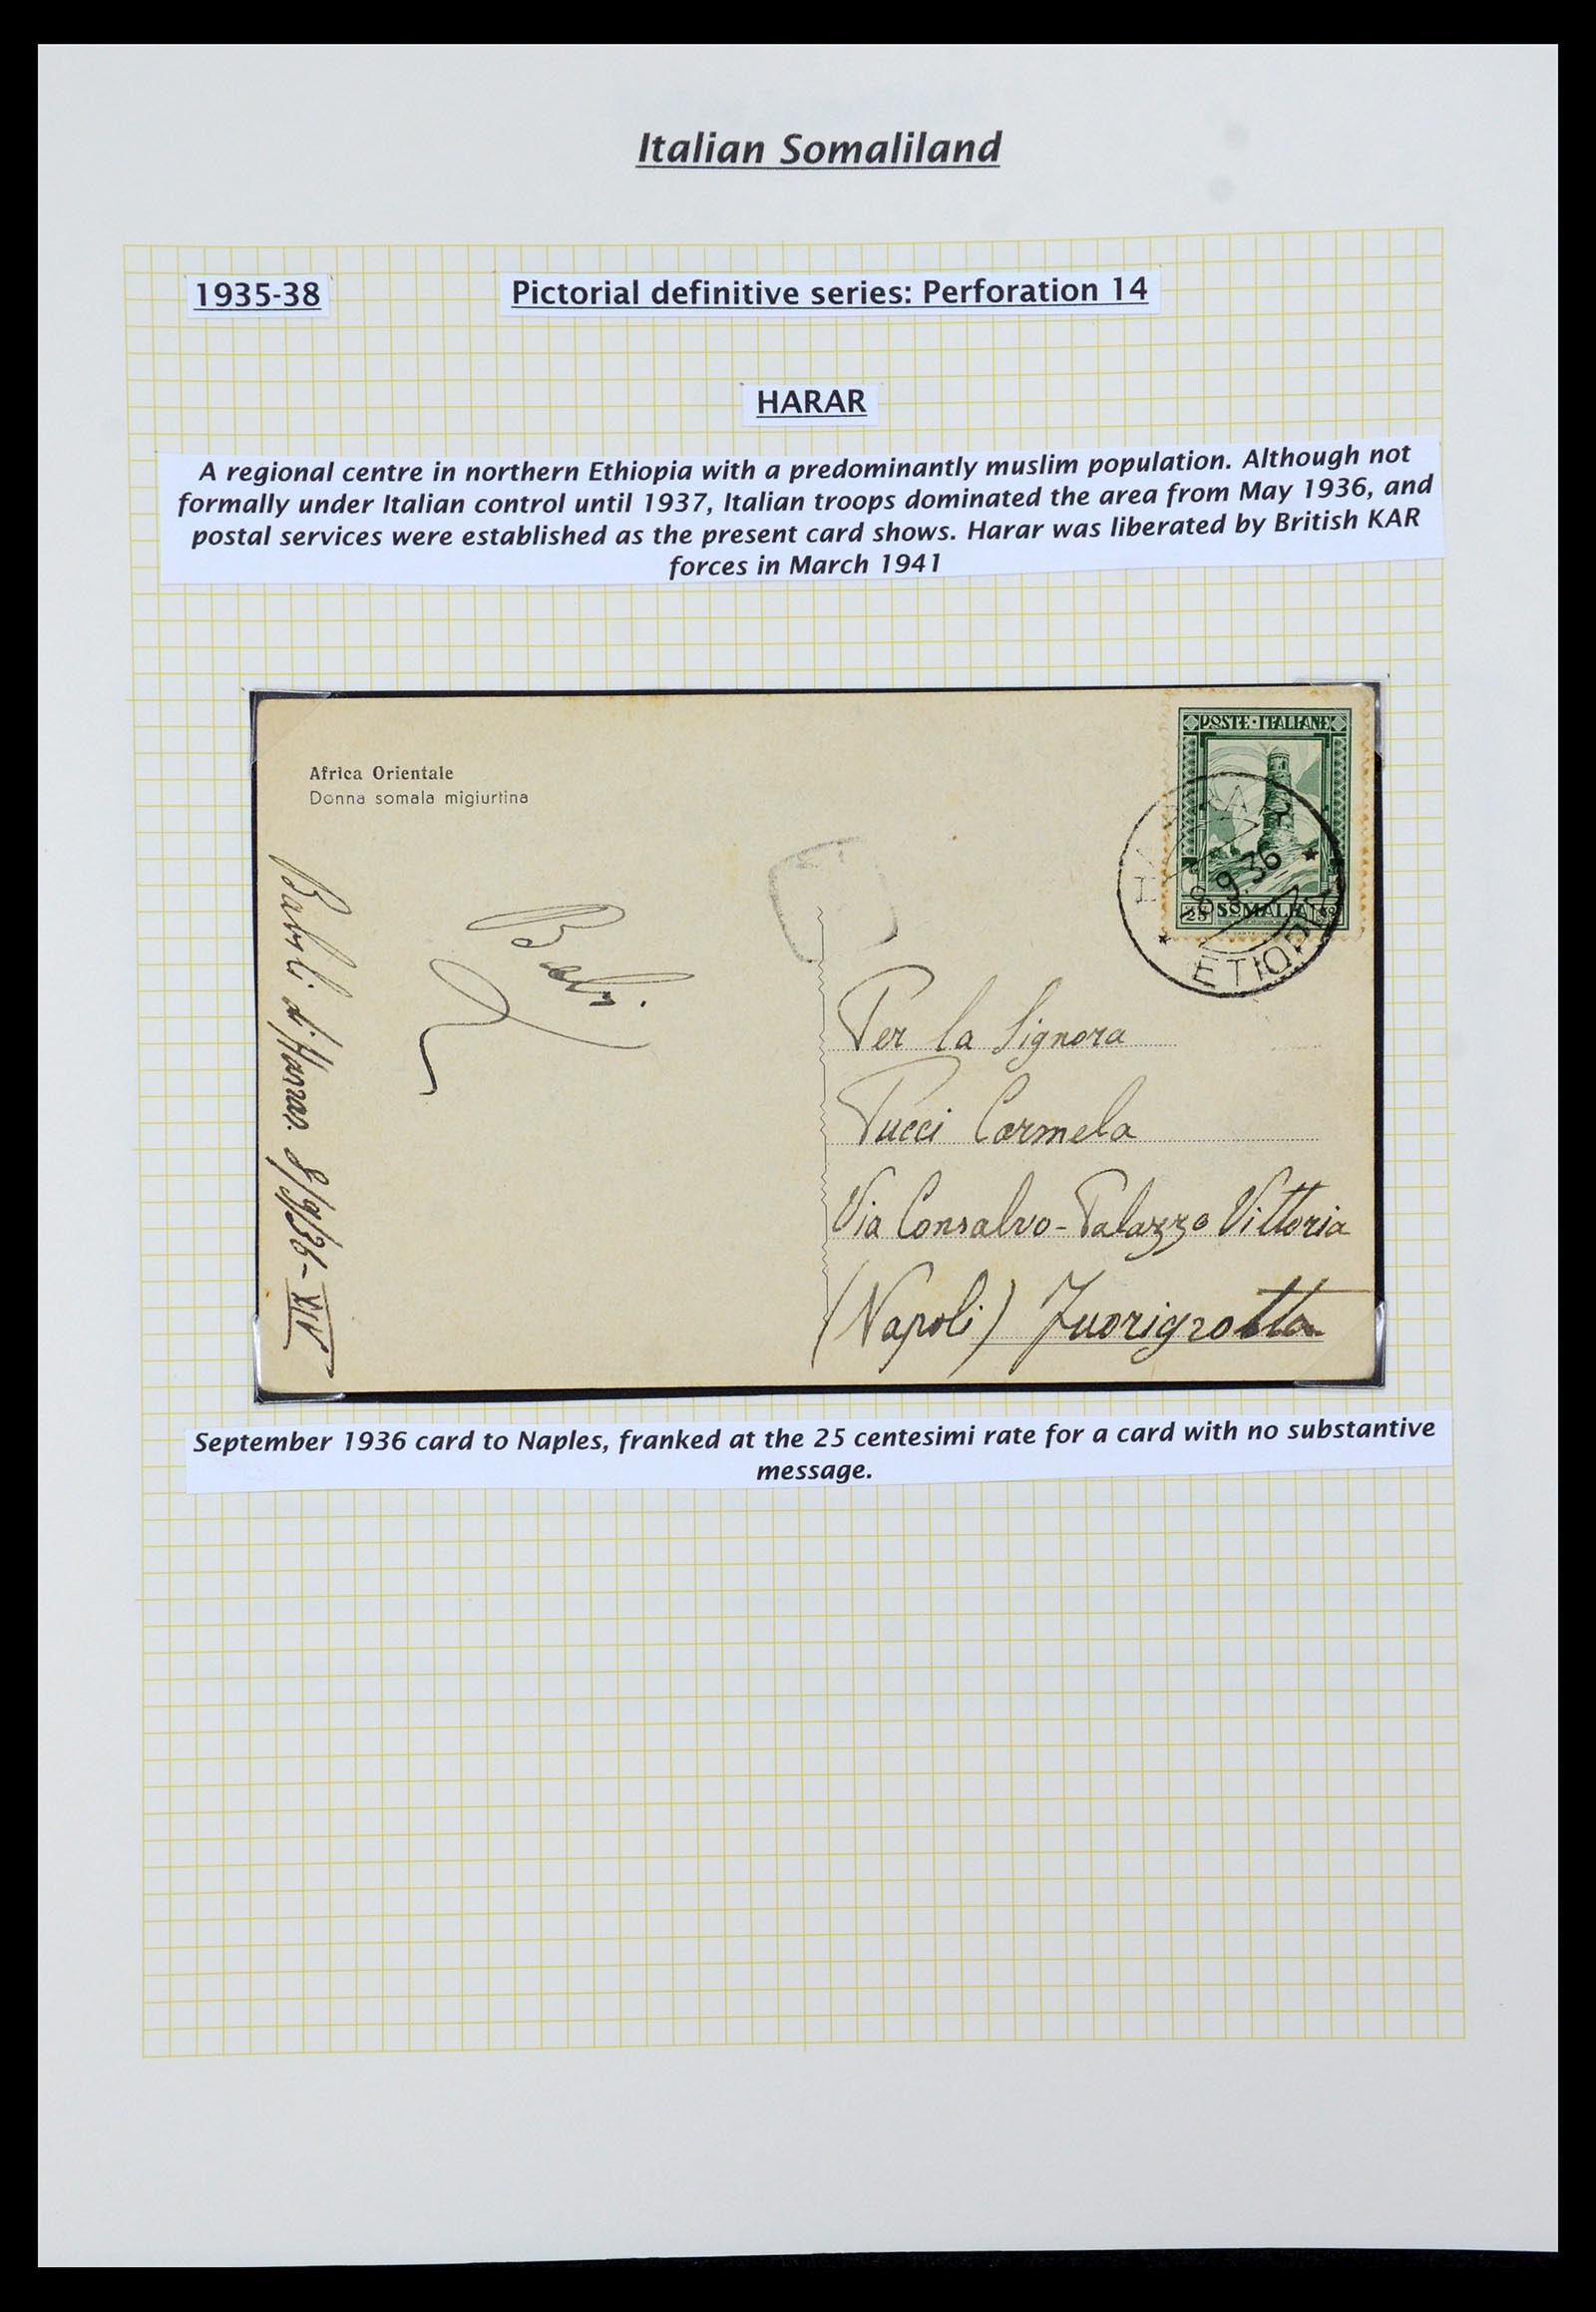 Italian Somaliland
1935-38
Pictorial definitive series: Perforation 14
HARAR
A regional centre in northern Ethiopia with a predominantly muslim population. Although not
formally under Italian control until 1937, Italian troops dominated the area from May 1936, and
postal services were established as the present card shows. Harar was liberated by British KAR
forces in March 1941
Africa Orientale
Donna somala migiurtina
POSTE·ITALIANE
25 SOMALIA
HARAR
8.9.36
ETIOPIA
di Harrar. 8/9/36-XIV
Baci.
Per la Signora
Pucci Carmela
Via Consalvo-Palazzo Vittoria
(Napoli) Fuorigrotta
September 1936 card to Naples, franked at the 25 centesimi rate for a card with no substantive
message.